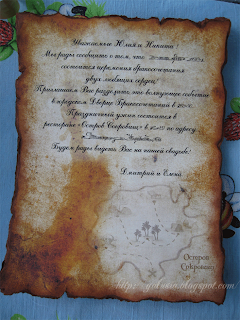 Уважаемые Юлия и Никита!
Мы рады сообщить о том, что
состоится церемония бракосочетания
двух любящих сердец!
Приглашаем Вас разделить это волнующее событие
в городском Дворце Бракосочетаний в
Праздничный ужин состоится в
ресторане «Остров Сокровищ» в по адресу
Будем рады видеть Вас на нашей свадьбе!
Дмитрий и Елена
Остров
Сокровищ